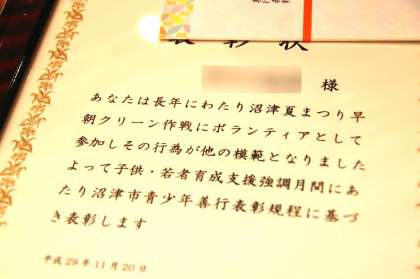 表彰状
様
あなたは長年にわたり沼津夏まつり早
朝クリーン作戦にボランティアとして
参加しその行為が他の模範となりました
よって子供・若者育成支援強調月間にあ
たり沼津市青少年善行表彰規程に基づ
き表彰します
平成29年11月20日